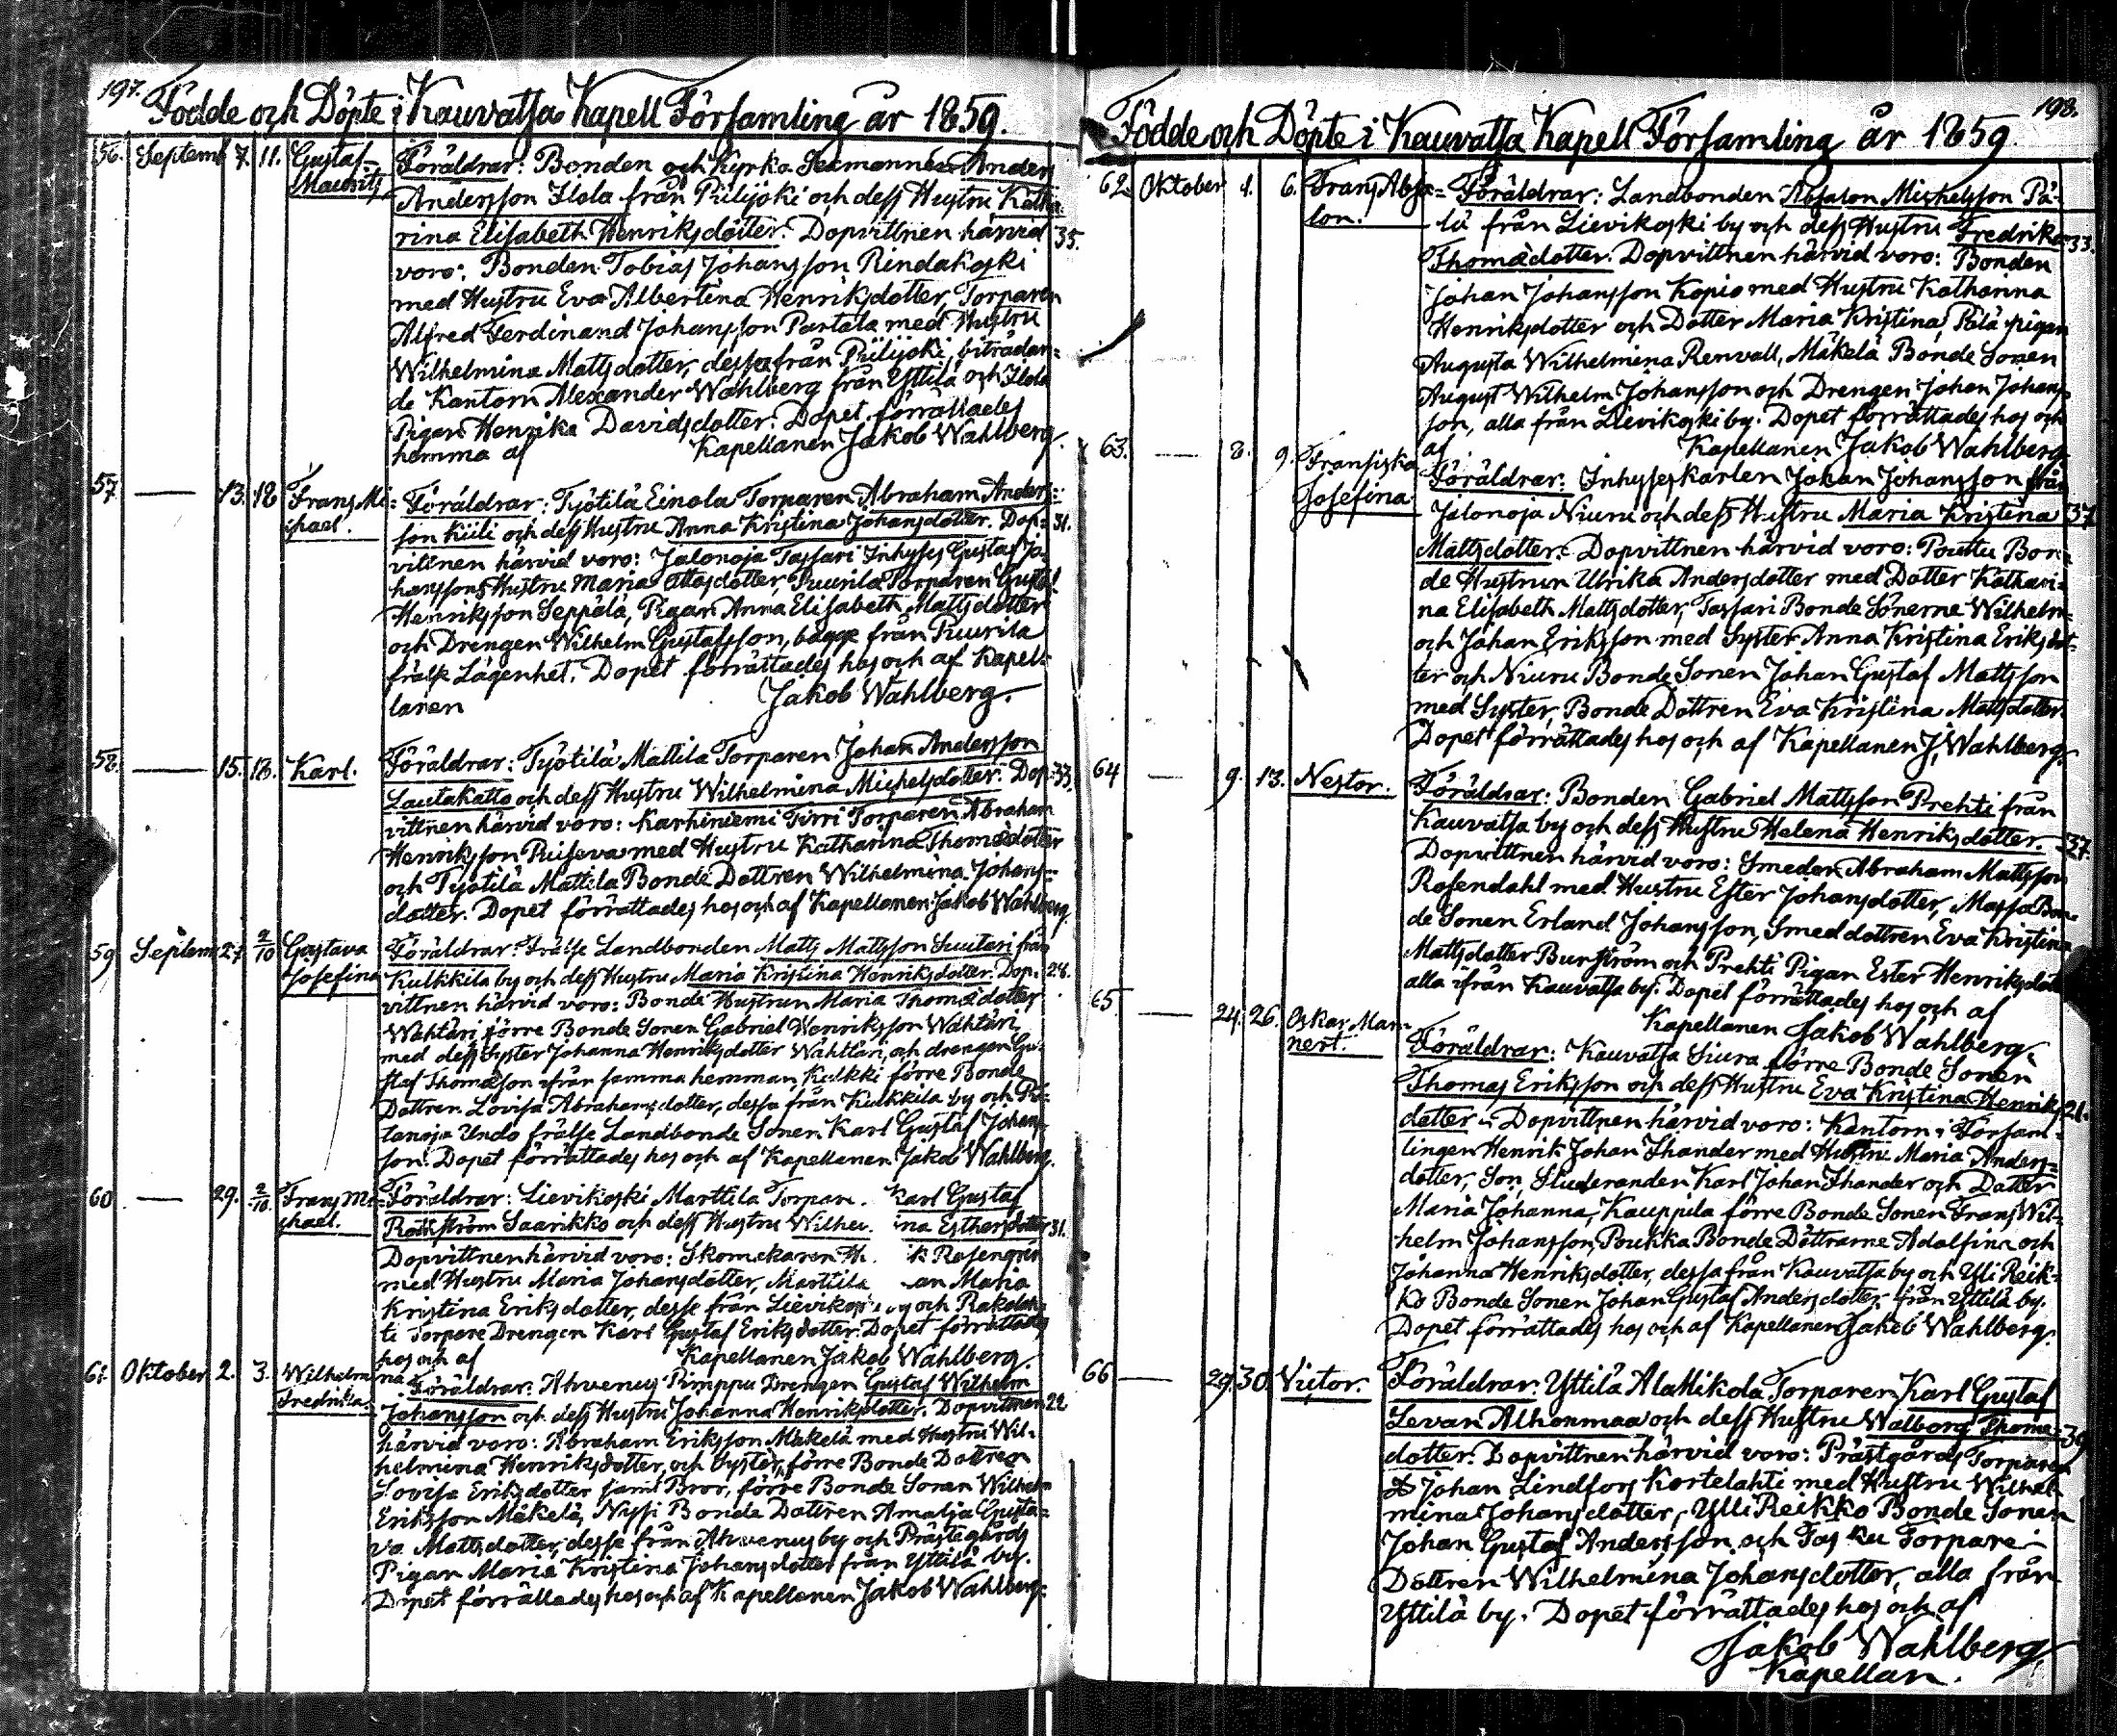 197.
Födde och Döpte i Kauvatsa Kapell Församling år 1859.
56. Septemb. 7. 11. Gustaf Mauritz
Föräldrar: Bonden och Kyrko Sexmannen Anders
Andersson Ilola från Piilijoki och dess Hustru Katha-
rina Elisabeth Henriksdotter. Dopvittnen härvid 35.
voro: Bonden Tobias Johansson Rendakoski
med Hustru Eva Albertina Henriksdotter, Torparen
Alfred Ferdinand Johansson Partala med Hustru
Wilhelmina Mattsdotter, dessa från Piilijoki, biträdan-
de Kantorn Alexander Wahlberg från Yttilä och Ilola
Pigan Henrika Davidsdotter. Dopet förrättades
hemma af Kapellanen Jakob Wahlberg.
57. — 13. 18 Frans Mi-
chael.
Föräldrar: Työtilä Einola Torparen Abraham Anders-
son Kiili och dess Hustru Anna Kristina Johansdotter. Dop- 31.
vittnen härvid voro: Jalonoja Tassari Inhyses Gustaf Jo-
hanssons Hustru Maria Mattsdotter, Puurila Torparen Gustaf
Henriksson Seppälä, Pigan Anna Elisabeth Mattsdotter
och Drengen Wilhelm Gustafsson, bägge från Puurila
frälse Lägenhet. Dopet förrättades hos och af Kapel-
lanen Jakob Wahlberg.
58. — 15. 18. Karl.
Föräldrar: Työtilä Mattila Torparen Johan Andersson
Lautakatto och dess Hustru Wilhelmina Michelsdotter. Dop- 33.
vittnen härvid voro: Karhiniemi Tirri Torparen Abraham
Henriksson med Hustru Katharina Thomædotter
och Työtilä Mattila Bonde Dottren Wilhelmina Johans-
dotter. Dopet förrättades hos och af Kapellanen Jakob Wahlberg.
59 Septem. 27. 2/10 Gustava
Josefina
Föräldrar: Frälse Landbonden Matts Mattsson Suutari från
Kulkkila by och dess Hustru Maria Kristina Henriksdotter. Dop- 28.
vittnen härvid voro: Bonde Hustrun Maria Thomædotter
Wahtäri, förre Bonde Sonen Gabriel Henriksson Wahtäri
med dess Syster Johanna Henriksdotter Wahtäri, och drengen Gu-
staf Thomæson ifrån samma hemman, Kulkki förre Bonde
Dottren Lovisa Abrahamsdotter, dessa från Kulkkila by och Pi-
tanoja Undo frälse Landbonde Sonen Karl Gustaf Johans-
son. Dopet förrättades hos och af Kapellanen Jakob Wahlberg.
60 — 29. 2/10. Frans Mi-
chael.
Föräldrar: Lievikoski Marttila Torpare. Karl Gustaf
Saarikko och dess Hustru Wilhel. ina Esthersdotter 31.
Dopvittnen härvid voro: Skomakaren H. k Rosengrén
med Hustru Maria Johansdotter, Marttila an Maria
Kristina Eriksdotter, desse från Lievikos by och Rakolah-
ti Torpare Drengen Karl Gustaf Eriksdotter. Dopet förrättades
hos och af Kapellanen Jakob Wahlberg.
61. Oktober 2. 3. Wilhelmi-
na Fredrika.
Föräldrar: Ahvenus Pimppu Drengen Gustaf Wilhelm
Johansson och dess Hustru Johanna Henriksdotter. Dopvittnen 22
härvid voro: Abraham Eriksson Mäkelä med Hustru Wil-
helmina Henriksdotter, och Syster, förre Bonde Dottren
Lovisa Eriksdotter samt Bror, förre Bonde Sonen Wilhelm
Eriksson Mäkelä, Nyssi Bonde Dottren Amalja Gusta-
va Mattsdotter, desse från Ahvenus by och Prästegårds
Pigan Maria Kristina Johansdotter från Yttilä by.
Dopet förrättades hos och af Kapellanen Jakob Wahlberg.
198.
Födde och Döpte i Kauvatsa Kapell Församling år 1859.
62. Oktober 1. 6. Frans Absa-
lon.
Föräldrar: Landbonden Absalon Michelsson Pä-
lä från Lievikoski by och dess Hustru Fredrika 33.
Thomædotter. Dopvittnen härvid voro: Bonden
Johan Johansson Kopio med Hustru Katharina
Henriksdotter och Dotter Maria Kristina, Pälä pigan
Augusta Wilhelmina Renvall, Mäkelä Bonde Sonen
August Wilhelm Johansson och Drengen Johan Johans-
son, alla från Lievikoski by. Dopet förrättades hos och
af Kapellanen Jakob Wahlberg.
63. — 8. 9. Fransiska
Josefina
Föräldrar: Inhyseskarlen Johan Johansson från
Jalonoja Niuru och dess Hustru Maria Kristina 37
Mattsdotter. Dopvittnen härvid voro: Pouttu Bon-
de Hustrun Ulrika Andersdotter med Dotter Kathari-
na Elisabeth Mattsdotter, Tassari Bonde Sönerne Wilhelm
och Johan Eriksson med Syster Anna Kristina Eriksdot-
ter och Niuru Bonde Sonen Johan Gustaf Mattsson
med Syster, Bonde Dottren Eva Kristina Mattsdotter.
Dopet förrättades hos och af Kapellanen J. Wahlberg.
64 — 9. 13. Nestor.
Föräldrar: Bonden Gabriel Mattsson Prehti från
Kauvatsa by och dess Hustru Helena Henriksdotter. 37.
Dopvittnen härvid voro: Smeden Abraham Mattsson
Rosendahl med Hustru Ester Johansdotter, Massa Bon-
de Sonen Erland Johansson, Smed dottren Eva Kristina
Mattsdotter Burström och Prehti Pigan Ester Henriksdott.
alla ifrån Kauvatsa by. Dopet förrättades hos och af
Kapellanen Jakob Wahlberg.
65. — 24. 26. Oskar Man-
nert.
Föräldrar: Kauvatsa Siura förre Bonde Sonen
Thomas Eriksson och dess Hustru Eva Kristina Henriks- 21.
dotter. Dopvittnen härvid voro: Kantorn i Försam-
lingen Henrik Johan Ihander med Hustru Maria Anders-
dotter, Son, Studeranden Karl Johan Ihander och Dotter
Maria Johanna, Kauppila förre Bonde Sonen Frans Wil-
helm Johansson, Poukka Bonde Döttrarne Adolfina och
Johanna Henriksdotter, dessa från Kauvatsa by och Yli Reik-
ko Bonde Sonen Johan Gustaf Andersdotter från Yttilä by.
Dopet förrättades hos och af Kapellanen Jakob Wahlberg.
66 — 29. 30. Victor.
Föräldrar: Yttilä Alattikola Torparen Karl Gustaf
Levan Alhonmaa och dess Hustru Walborg Thomæ- 39
dotter. Dopvittnen härvid voro: Prästgårds Torparen
Johan Lindfors Kortelahti med Hustru Wilhel-
mina Johansdotter, Ylli Reikko Bonde Sonen
Johan Gustaf Andersson, och Tas ku Torpare-
Dottren Wilhelmina Johansdotter, alla från
Yttilä by. Dopet förrättades hos och af
Jakob Wahlberg
Kapellan.